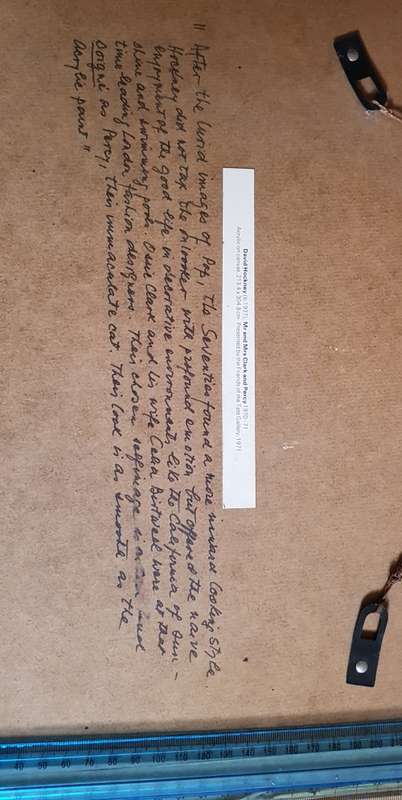 David Hockney (b.1937) Mr and Mrs Clark and Percy 1970-71
Acrylic on canvas 213.4 x 304.8 cm Presented by the Friends of the Tate Gallery, 1971
" After the lurid images of Pop, the Seventies found a more inward looking style.
Hockney did not tax the onlooker with profound emotion but offered the naive
enjoyment of the good life in decorative environments like the California of sun-
shine and swimming pools. Ossie Clark and his wife Celia Birtwell were at that
time leading London fashion designers. Their chosen self image is
soigné as Percy, their immaculate cat. Their look is as smooth as the
acrylic paint "
40 50 60 70 80 90 100 110 120 130 140 150 160 170 180 190 200 210 220 230 240 250 260 270 280 290 300